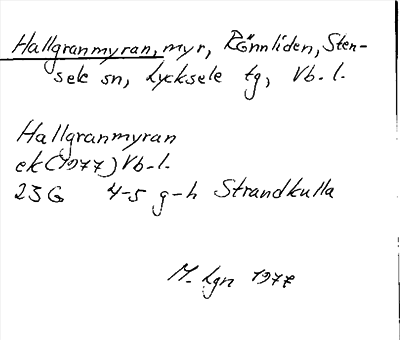 Hallgranmyran, myr, Rönnliden, Sten-
sele sn, Lycksele tg, Vb. l.
Hallgranmyran
ek (1977) Vb-l.
23G 4-5 g-h Strandkulla
M. Lgn 1977